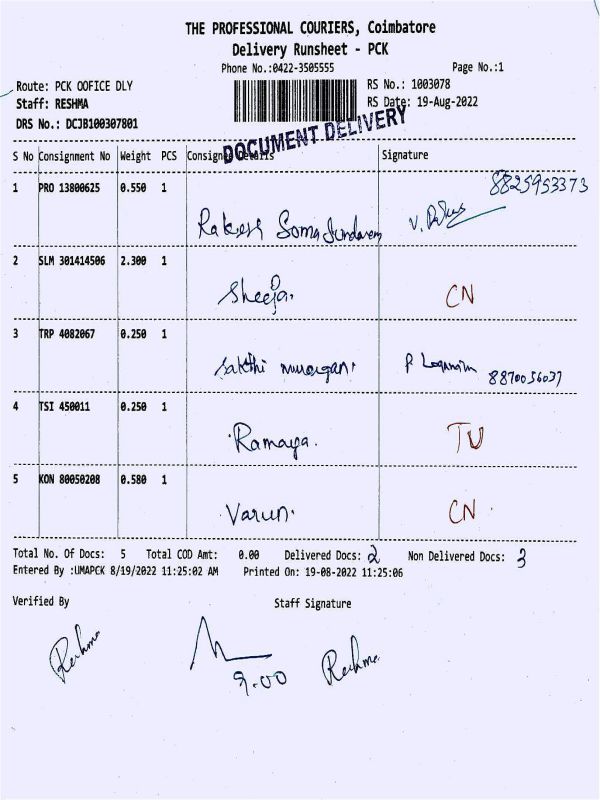 THE PROFESSIONAL COURIERS, Coimbatore
Delivery Runsheet - PCK
Phone No.:0422-3505555
Page No.:1
Route: PCK OOFICE DLY
RS No.: 1003078
Staff: RESHMA
RS Date: 19-Aug-2022
DRS No.: DCJB100307801
DOCUMENT DELIVERY
S No Consignment No Weight PCS Consignee Details Signature
1 PRO 13800625 0.550 1 8825953373
Rakesh Soma Sundaram
2 SLM 301414506 2.300 1
Sheeja. CN
3 TRP 4082067 0.250 1
Sakthi murugan 8870056037
4 TSI 450011 0.250 1
Ramaya. TU
5 KON 80050208 0.580 1
Varun. CN.
Total No. Of Docs: 5 Total COD Amt: 0.00 Delivered Docs: 2 Non Delivered Docs: 3
Entered By :UMAPCK 8/19/2022 11:25:02 AM Printed On: 19-08-2022 11:25:06
Verified By Staff Signature
Reshma Reshma
9.00